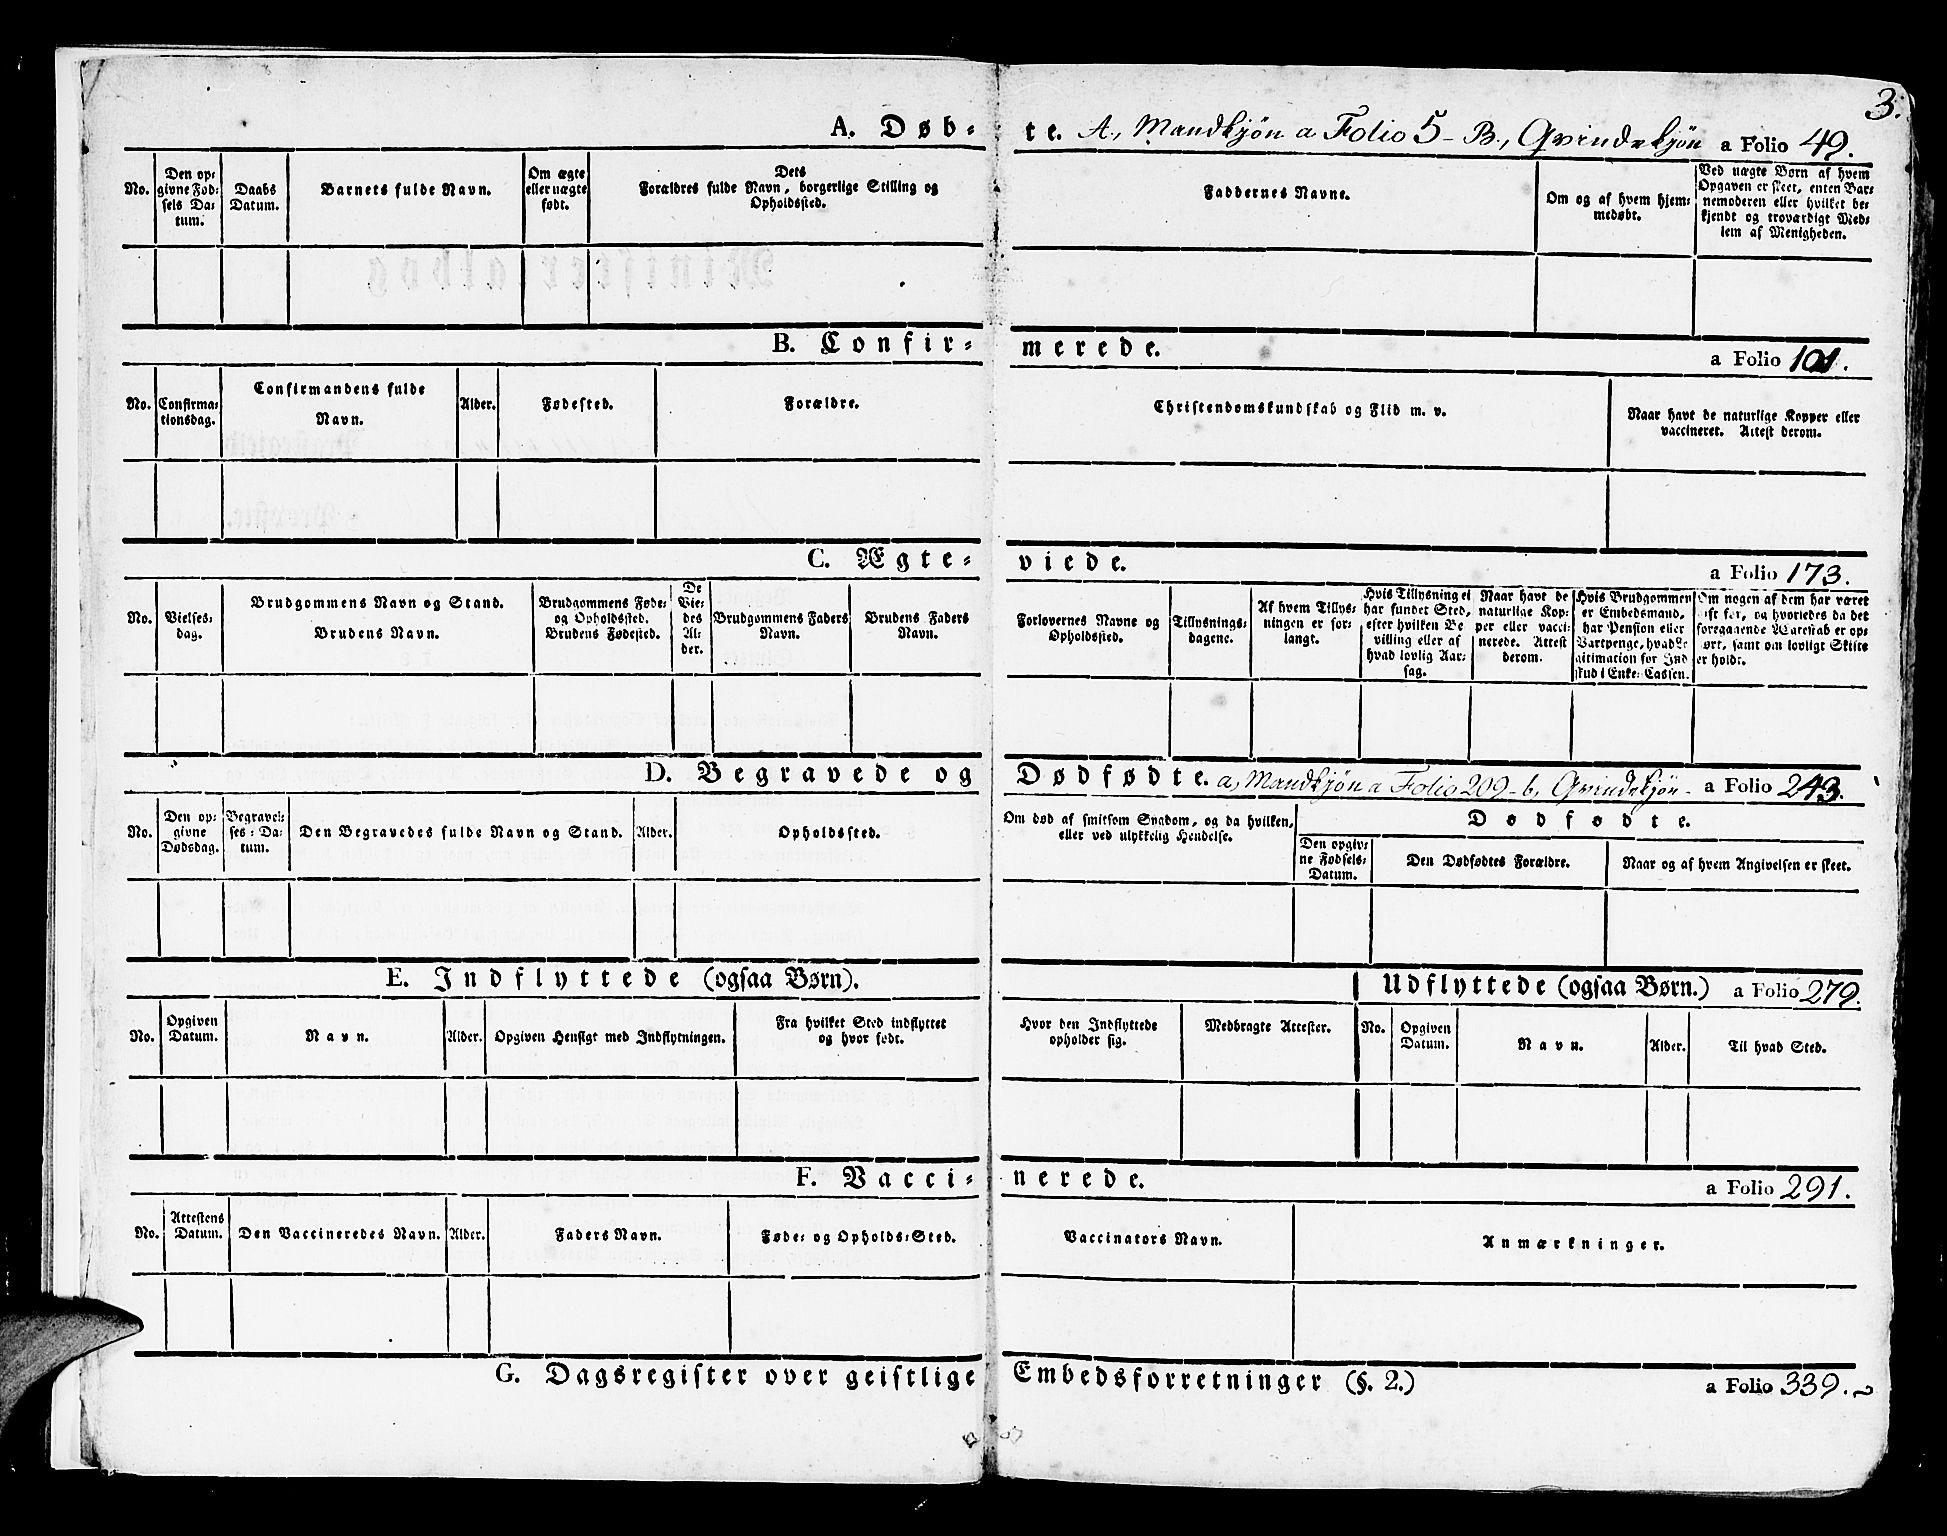 3.
A. Døb-te. A, Mandkjön a Folio 5 - B., Qvindekjön a Folio 49.
No.
Den op-
givne Fød-
sels Da-
tum.
Daabs
Datum.
Barnets fulde Navn.
Om ægte
eller uægte
født.
Dets
Forældres fulde Navn, borgerlige Stilling og
Opholdssted.
Faddernes Navne.
Om og af hvem hjem-
medøbt.
Ved uægte Børn af hvem
Opgaven er skeet, enten Bar-
nemoderen eller hvilket be-
kjendt og troværdigt Med-
lem af Menigheden.
B. Confir-merede. a Folio 101.
No.
Confirma-
tionsdag.
Confirmandens fulde
Navn.
Alder.
Fødested.
Forældre.
Christendomskundskab og Flid m. v.
Naar havt de naturlige Kopper eller
vaccineret. Attest derom.
C. Ægte-viede. a Folio 173.
No.
Vielses-
dag.
Brudgommens Navn og Stand.
Brudens Navn.
Brudgommens Føde-
og Opholdssted.
Brudens Fødested.
De
Vie-
des
Al-
der.
Brudgommens Faders
Navn.
Brudens Faders
Navn.
Forlovernes Navne og
Opholdssted.
Tillysnings-
dagene.
Af hvem Tillys-
ningen er for-
langt.
Hvis Tillysning ei
har fundet Sted,
efter hvilken Be
villing eller af
hvad lovlig Aar-
sag.
Naar havt de
naturlige Kop-
per eller vacci-
nerede. Attest
derom.
Hvis Brudgommen
er Embedsmand,
har Pension eller
Vartpenge, hvad Le
gitimation for Ind
skud i Enke-Cassen.
Om nogen af dem har været
gift før, og hvorledes da det
foregaaende Ægteskab er op-
hørt, samt om lovligt Skifte
er holdt.
D. Begravede og Dødfødte. a, Mandkjön a Folio 209 - b, Qvindekjön - a Folio 243.
No.
Den op-
givne
Dødsdag.
Begravel-
ses-Da-
tum.
Den Begravedes fulde Navn og Stand.
Alder.
Opholdssted.
Om død af smitsom Sygdom, og da hvilken,
eller ved ulykkelig Hendelse.
Dødfødte.
Den opgiv-
ne Fødsels-
Datum.
Den Dødfødtes Forældre.
Naar og af hvem Angivelsen er skeet.
E. Indflyttede (ogsaa Børn).
Udflyttede (ogsaa Børn.) a Folio 279.
No.
Opgiven
Datum.
Navn.
Alder.
Opgiven Hensigt med Indflytningen.
Fra hvilket Sted indflyttet
og hvor født.
Hvor den Indflyttede
opholder sig.
Medbragte Attester.
No.
Opgiven
Datum.
Navn.
Alder.
Til hvad Sted.
F. Vacci-nerede. a Folio 291.
No.
Attestens
Datum.
Den Vaccineredes Navn.
Alder.
Faders Navn.
Føde- og Opholds-Sted.
Vaccinators Navn.
Anmærkninger.
G. Dagsregister over geistlige Embedsforretninger (§. 2.) a Folio 339.